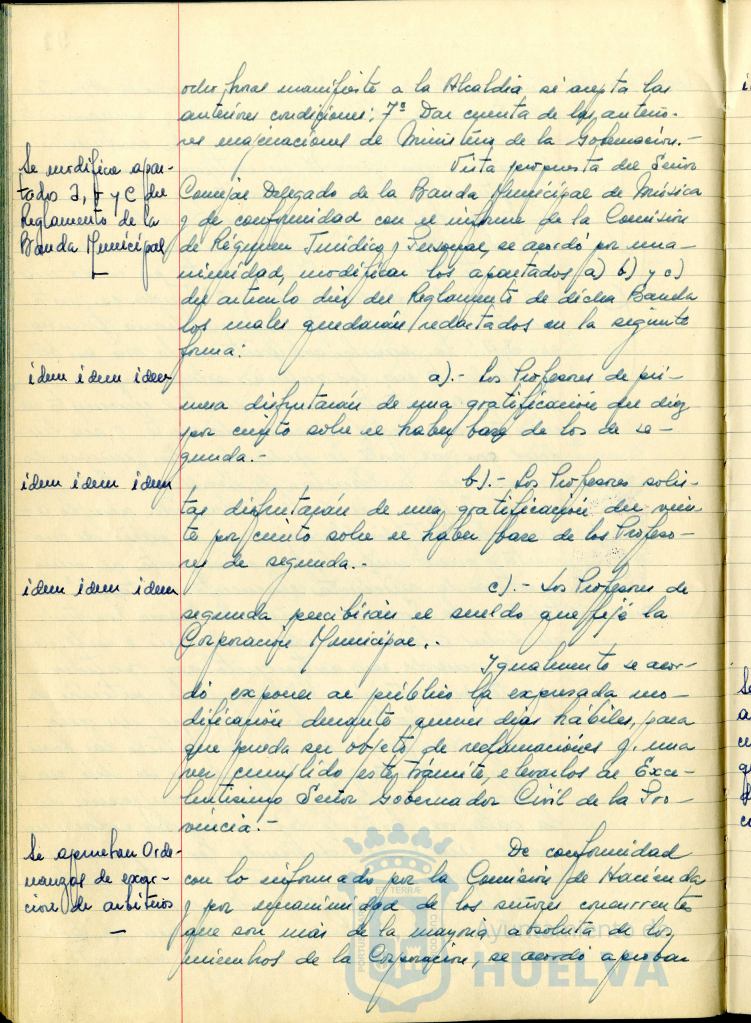 ocho horas manifieste a la Alcaldia si acepta las
anteriores condiciones; 7ª Dar cuenta de las anterio-
res enajenaciones al Ministerio de la Gobernación.-
Se modifica apar-
tados a, b y c del
Reglamento de la
Banda Municipal
Vista propuesta del Señor
Concejal Delegado de la Banda Municipal de Música
y de conformidad con el informe de la Comisión
de Régimen Jurídico y Personal, se acordó por una-
nimidad, modificar los apartados a) b) y c)
del articulo diez del Reglamento de dicha Banda
los cuales quedarán redactados en la siguiente
forma:
idem idem idem
a).- Los Profesores de pri-
mera disfrutarán de una gratificación del diez
por ciento sobre el haber base de los de se-
gunda.-
idem idem idem
b).- Los Profesores solis-
tas disfrutarán de una gratificación del vein-
te por ciento sobre el haber base de los Profeso-
res de segunda.-
idem idem idem
c).- Los Profesores de
segunda percibirán el sueldo que fije la
Corporación Municipal.-
Igualmente se acor-
dó exponer al público la expresada mo-
dificación durante quince dias hábiles, para
que pueda ser objeto de reclamaciones y, una
vez cumplido este trámite, elevarlos al Exce-
lentisimo Señor Gobernador Civil de la Pro-
vincia.-
Se aprueban Orde-
nanzas de exac-
ción de arbitrios
De conformidad
con lo informado por la Comisión de Hacienda
y por unanimidad de los señores concurrentes
que son mas de la mayoria absoluta de los
miembros de la Corporación, se acordó aprobar
Ayuntamiento de
HUELVA